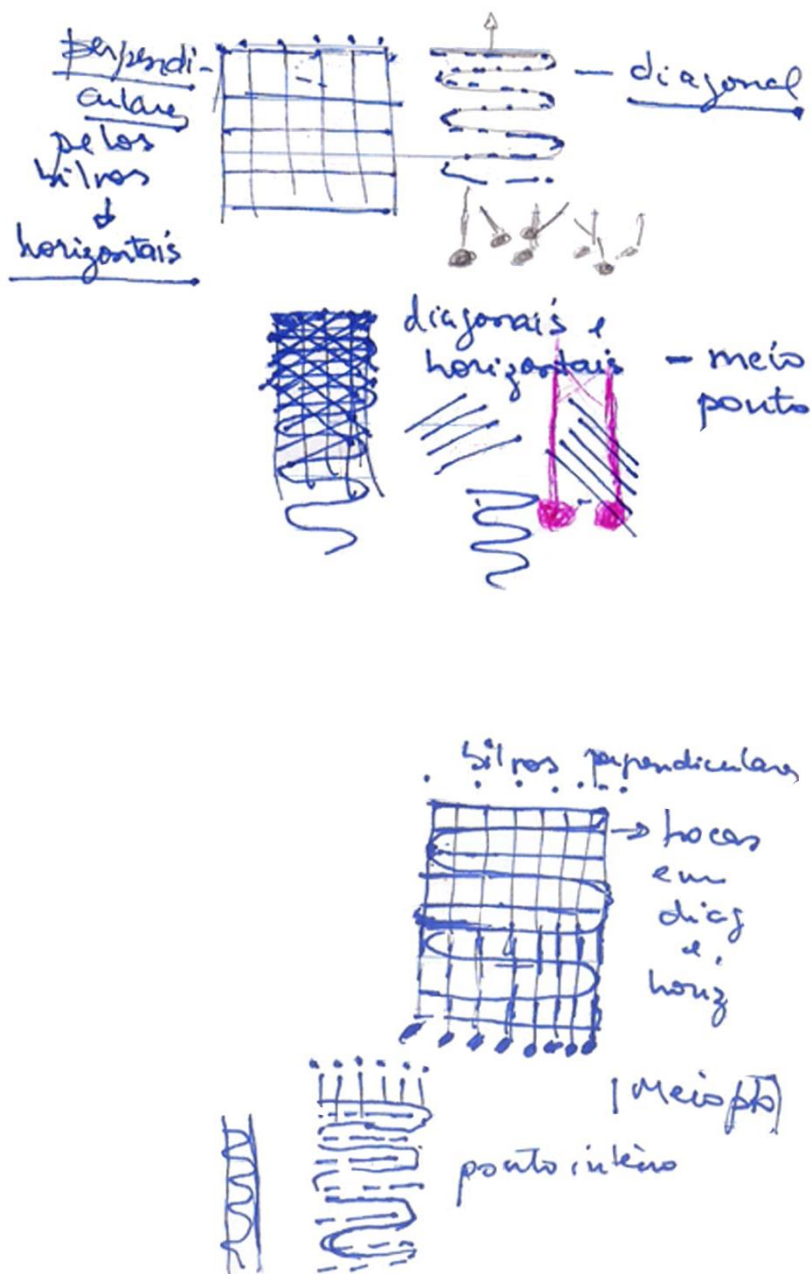 perpendi-
culares
pelos
bilros
horizontais
— diagonal
diagonais e
horizontais
– meio
ponto
bilros perpendiculares
→ trocas
em
diag
e
horiz
Meio pto
ponto inteiro